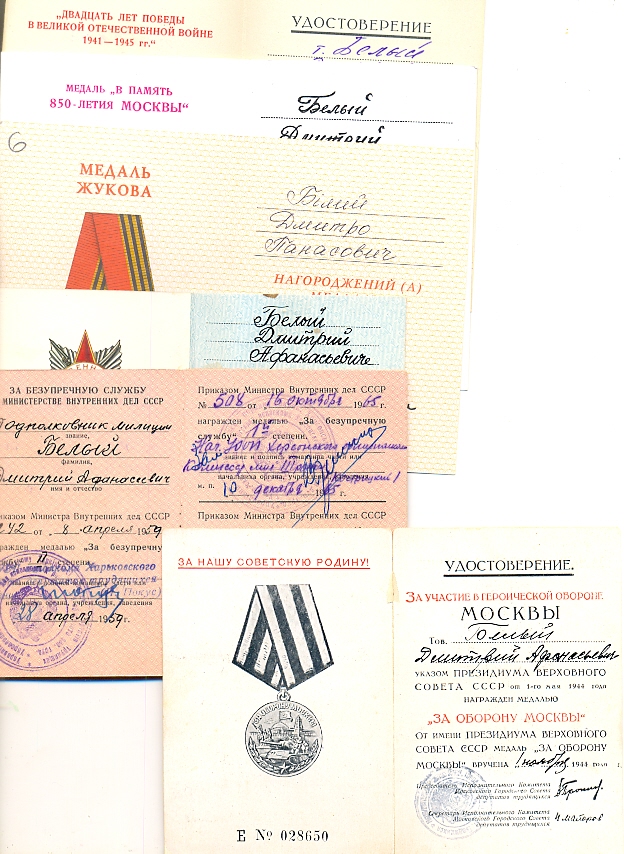 „ДВАДЦАТЬ ЛЕТ ПОБЕДЫ
В ВЕЛИКОЙ ОТЕЧЕСТВЕННОЙ ВОЙНЕ
1941—1945 гг."
УДОСТОВЕРЕНИЕ
т. Белый
МЕДАЛЬ „В ПАМЯТЬ
850-ЛЕТИЯ МОСКВЫ"
Белый
Дмитрий
6
МЕДАЛЬ
ЖУКОВА
Білий
Дмитро
Панасович
НАГОРОДЖЕНИЙ (А)
Белый
Дмитрий
Афанасьевич
ЗА БЕЗУПРЕЧНУЮ СЛУЖБУ
МИНИСТЕРСТВЕ ВНУТРЕННИХ ДЕЛ СССР
Подполковник милиции
звание,
Белый
фамилия,
Дмитрий Афанасьевич
имя и отчество
Приказом Министра Внутренних дел СССР
242 от „8 апреля 1959
награжден медалью „За безупречную
II степени
28 апреля 1959
Приказом Министра Внутренних дел СССР
№ 508 от „16 октября 1965 г.
награжден медалью „За безупречную
службу" 1й степени.
звание и подпись командира части или
начальника органа, учреждения, заведения
м. п. 10 декабря 1965
Приказом Министра Внутренних дел СССР
ЗА НАШУ СОВЕТСКУЮ РОДИНУ!
Е № 028650
УДОСТОВЕРЕНИЕ.
ЗА УЧАСТИЕ В ГЕРОИЧЕСКОЙ ОБОРОНЕ
МОСКВЫ
Тов. Белый
Дмитрий Афанасьевич
УКАЗОМ ПРЕЗИДИУМА ВЕРХОВНОГО
СОВЕТА СССР от 1-го мая 1944 года
НАГРАЖДЕН МЕДАЛЬЮ
„ЗА ОБОРОНУ МОСКВЫ"
ОТ ИМЕНИ ПРЕЗИДИУМА ВЕРХОВНОГО
СОВЕТА СССР МЕДАЛЬ „ЗА ОБОРОНУ
МОСКВЫ" ВРУЧЕНА 1 ноября 1944 года
Председатель Исполнительного Комитета
Московского Городского Совета
депутатов трудящихся
Секретарь Исполнительного Комитета
Московского Городского Совета
депутатов трудящихся